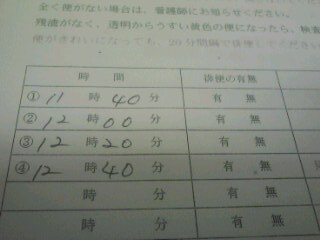 全く便がない場合は、看護師にお知らせください。
残渣がなく、透明からうすい黄色の便になったら、検査
便がきれいになっても、20分間隔で排便してください
時 間 排便の有無
① 11 時 40 分 有 無
② 12 時 00 分 有 無
③ 12 時 20 分 有 無
④ 12 時 40 分 有 無
時 分 有 無
時 分 有 無